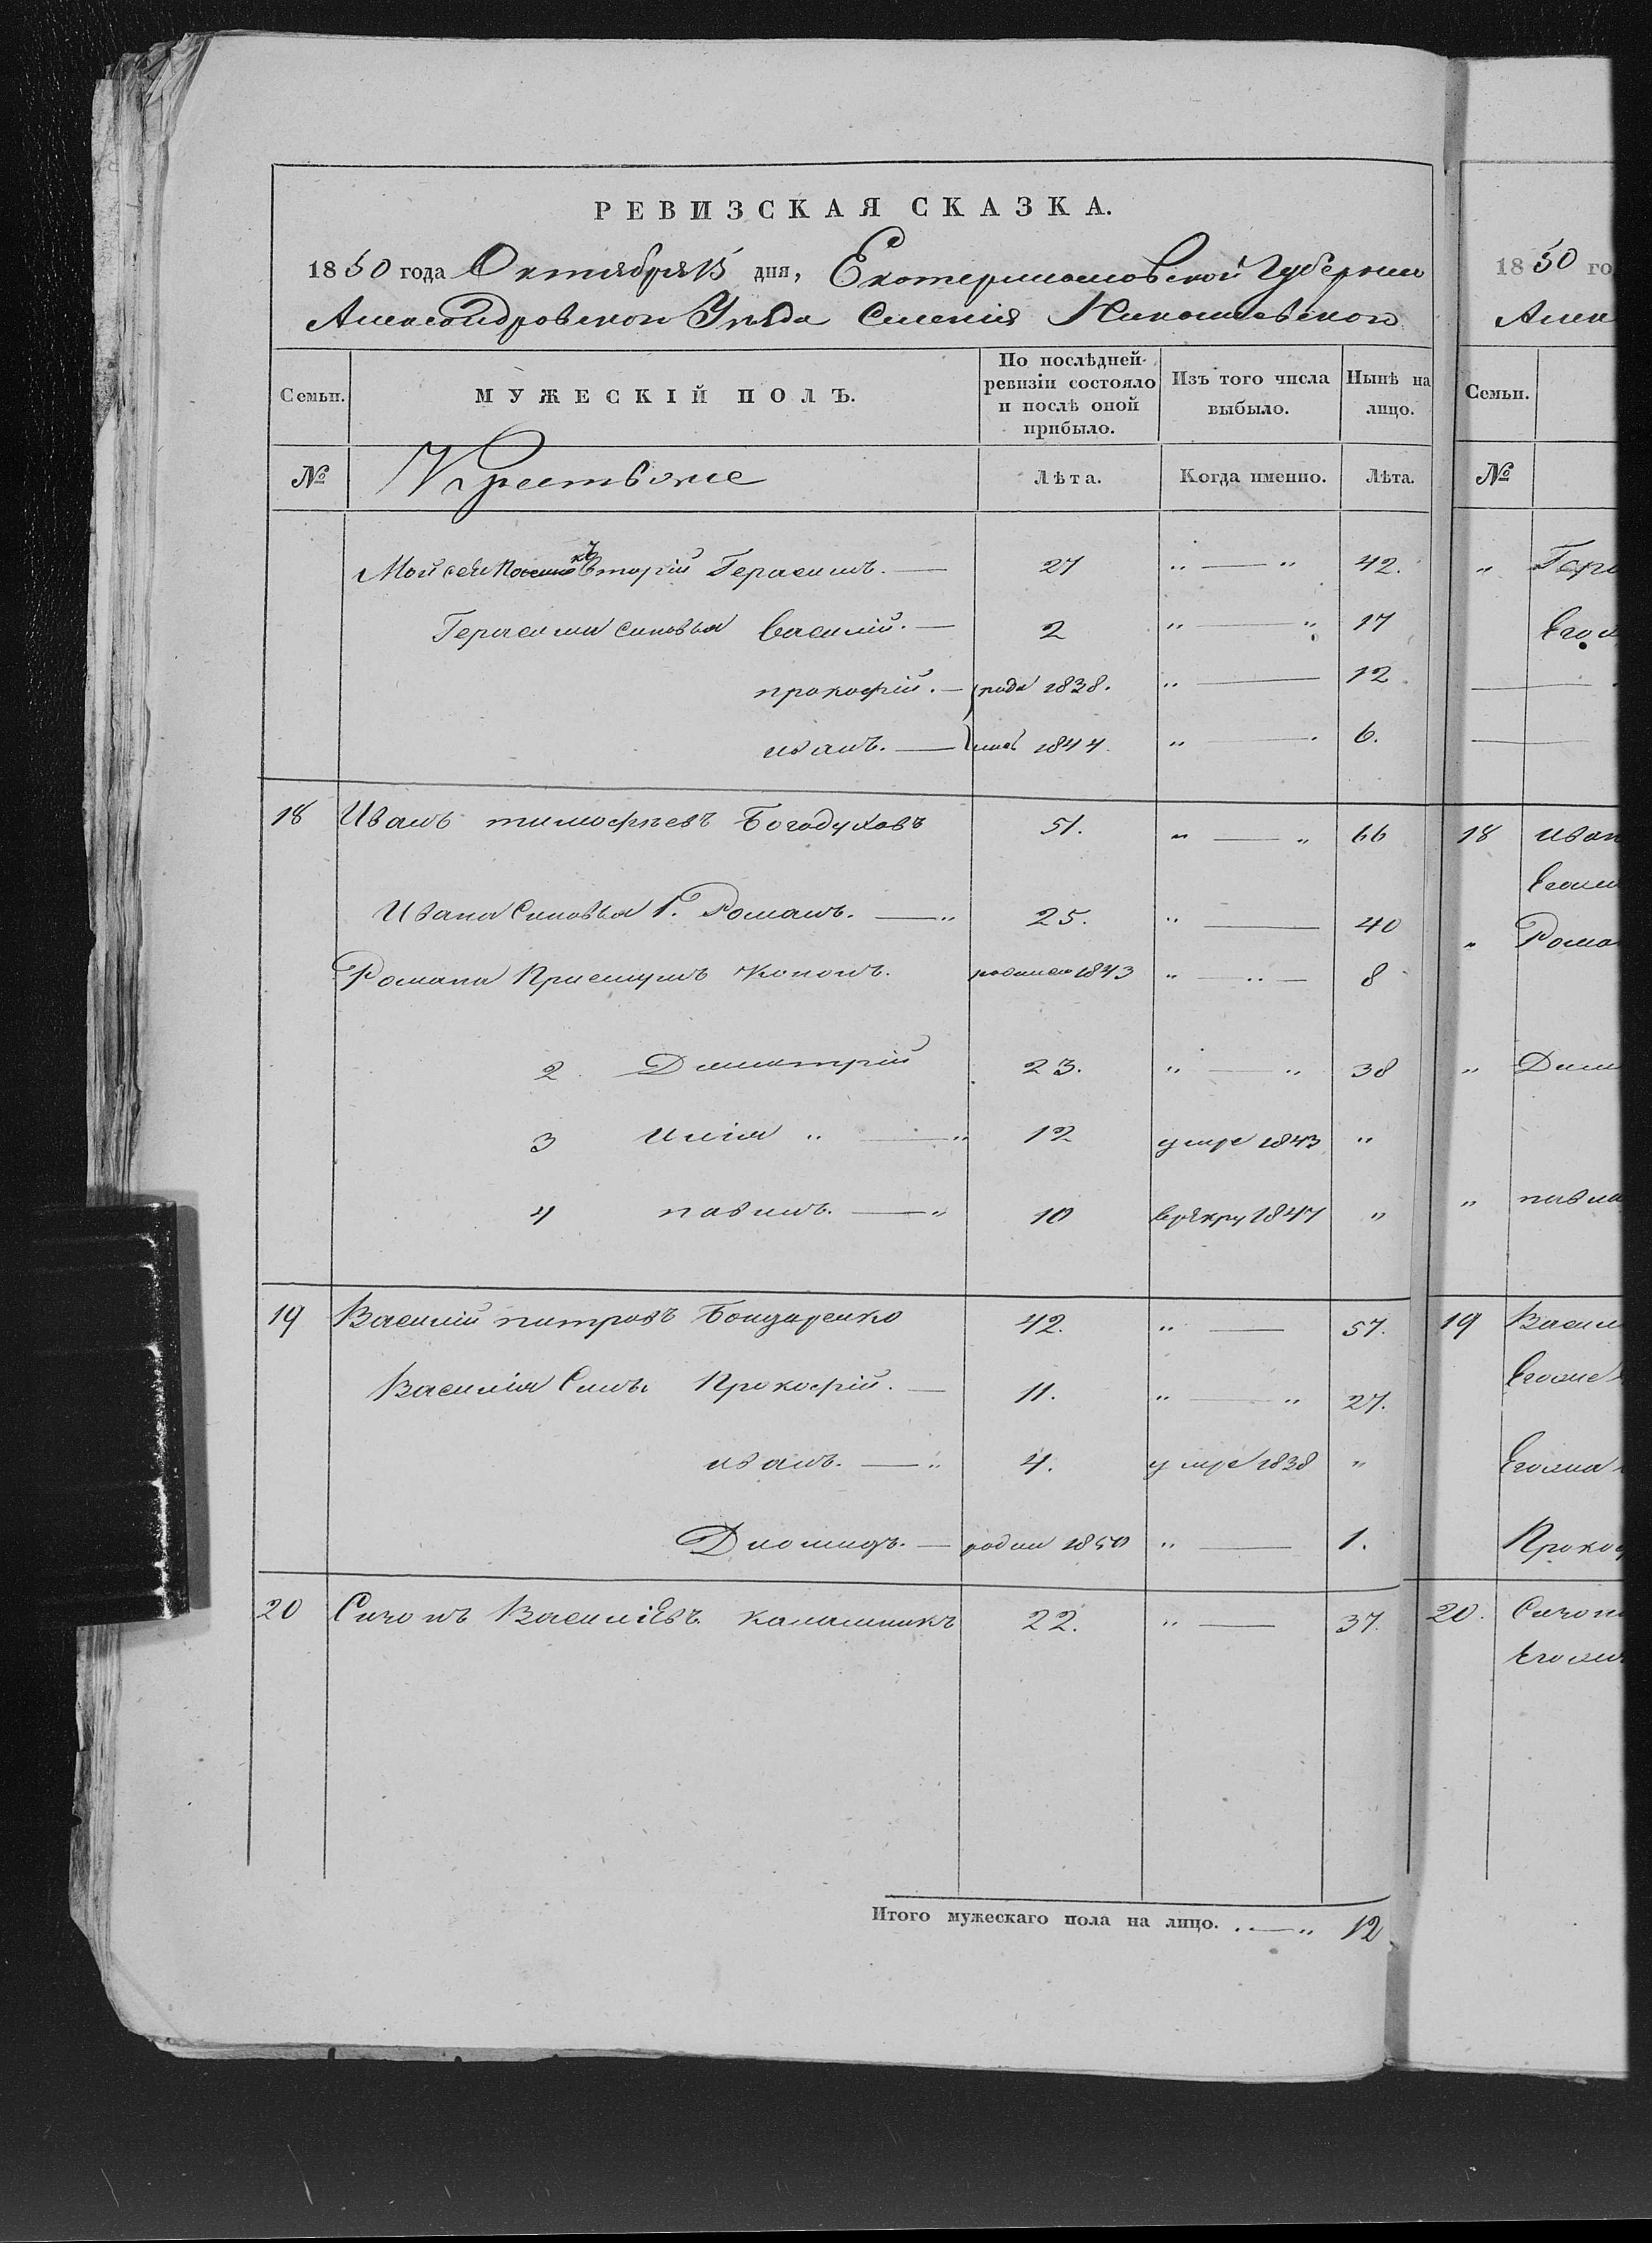 РЕВИЗСКАЯ СКАЗКА.
1850 года Октября 15 дня, Екатеринославской Губернии
Александровскои Уѣзда Селенія Николаевского
Семьи. МУЖЕСКІЙ ПОЛЪ. По послѣдней ревизіи состояло и послѣ оной прибыло. Изъ того числа выбыло. Нынѣ на лицо.
№ Крестьяне Лѣта. Когда именно. Лѣта.
Мойсея Вторій Герасимъ. — 27 " — " 42.
Герасима синовья Василій. — 2 " — " 17
прокофій. — рода 1838. " — 12
иванъ. — 1844. " — 6.
18 Иванъ тимофѣевъ Богодуховъ 51. " — " 66
Ивана Синовья 1. Романъ. — " 25. " — 40
Романа Приемишъ Кононъ. родився 1843 " — " — 8
2 Димитрій 23. " — " 38
3 Илія " — " 12 умре 1843 "
4 павилъ. — " 10 врѣкру 1847 "
19 Василій питровъ Бондаренко 42. " — 57.
Василія Синъ Прокофій. — 11. " — " 27.
иванъ. — " 4. умре 1838 "
Диомидъ. — родил 1850 " — 1.
20 Василіевъ калашникъ 22. " — 37.
Итого мужескаго пола на лицо. . — " 12
1850 го
Алек
Семьи.
№
" Гера
18 иван
" Рома
" Дими
" павла
19 Васил
Прокоф
20.